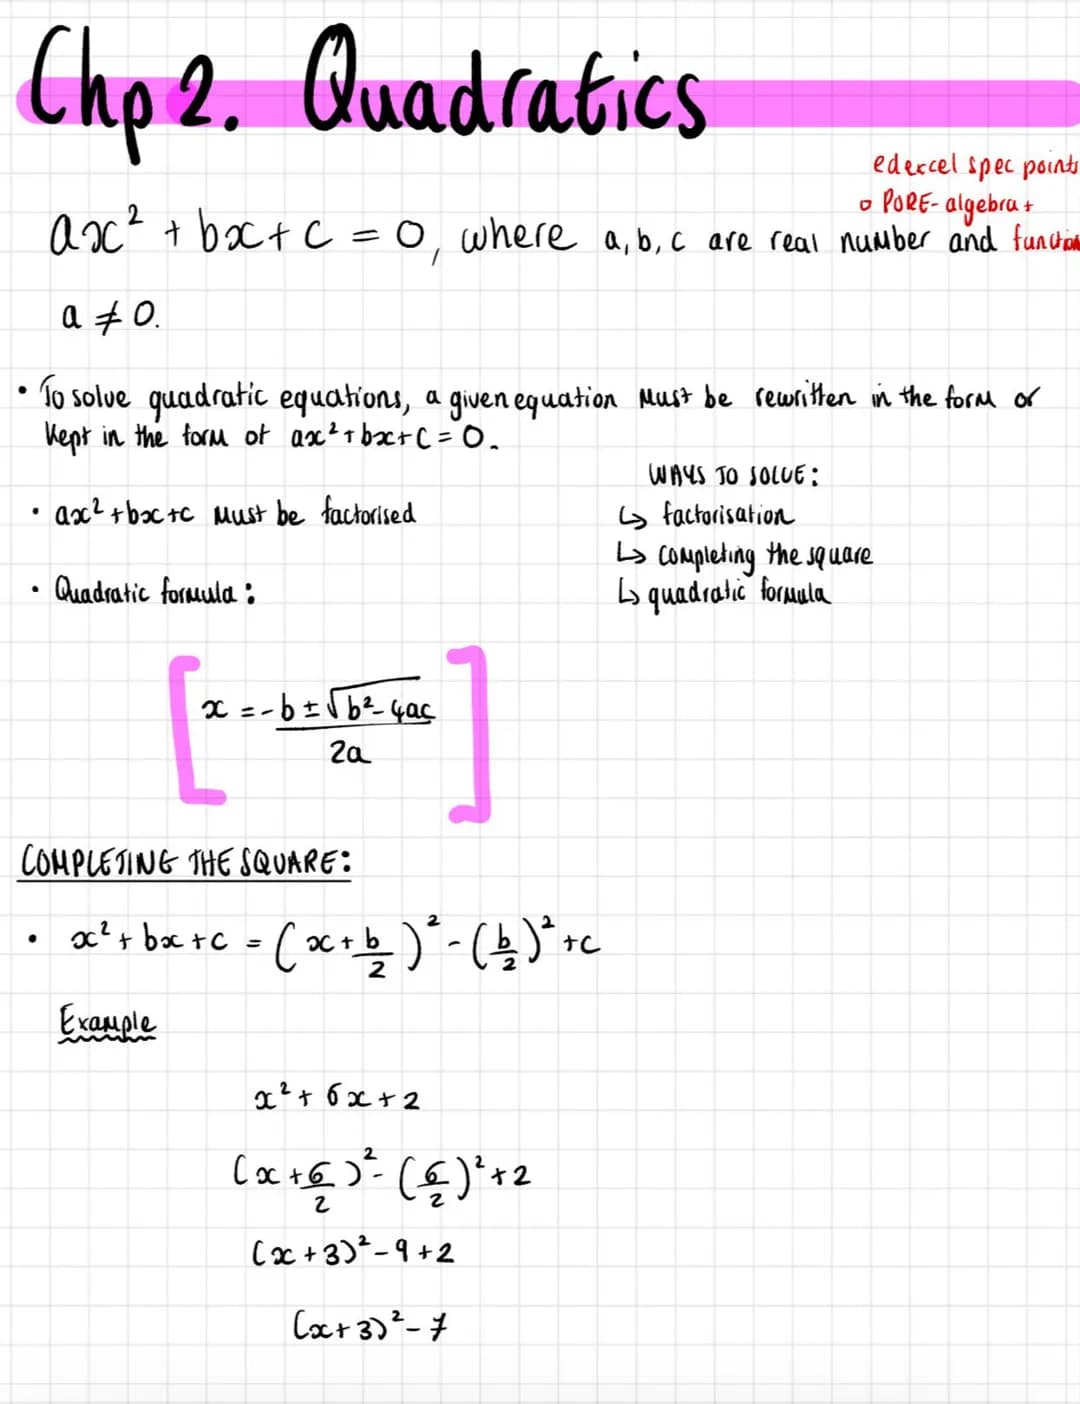 Chp 2. Quadratics
edexcel spec points
▫ PURE- algebra +
functions
ax² + bx + c = 0, where a, b, c are real number and
a ≠ 0.
• To solve quadratic equations, a given equation must be rewritten in the form or
kept in the form of ax² + bx + c = 0.
WAYS TO SOLVE:
• ax² + bx + c must be factorised
↳ factorisation
↳ completing the square
• Quadratic formula:
↳ quadratic formula
[x = -b ± √b² - 4ac / 2a]
COMPLETING THE SQUARE:
• x² + bx + c = (x + b/2)² - (b/2)² + c
Example
x² + 6x + 2
(x + 6/2)² - (6/2)² + 2
(x + 3)² - 9 + 2
(x + 3)² - 7